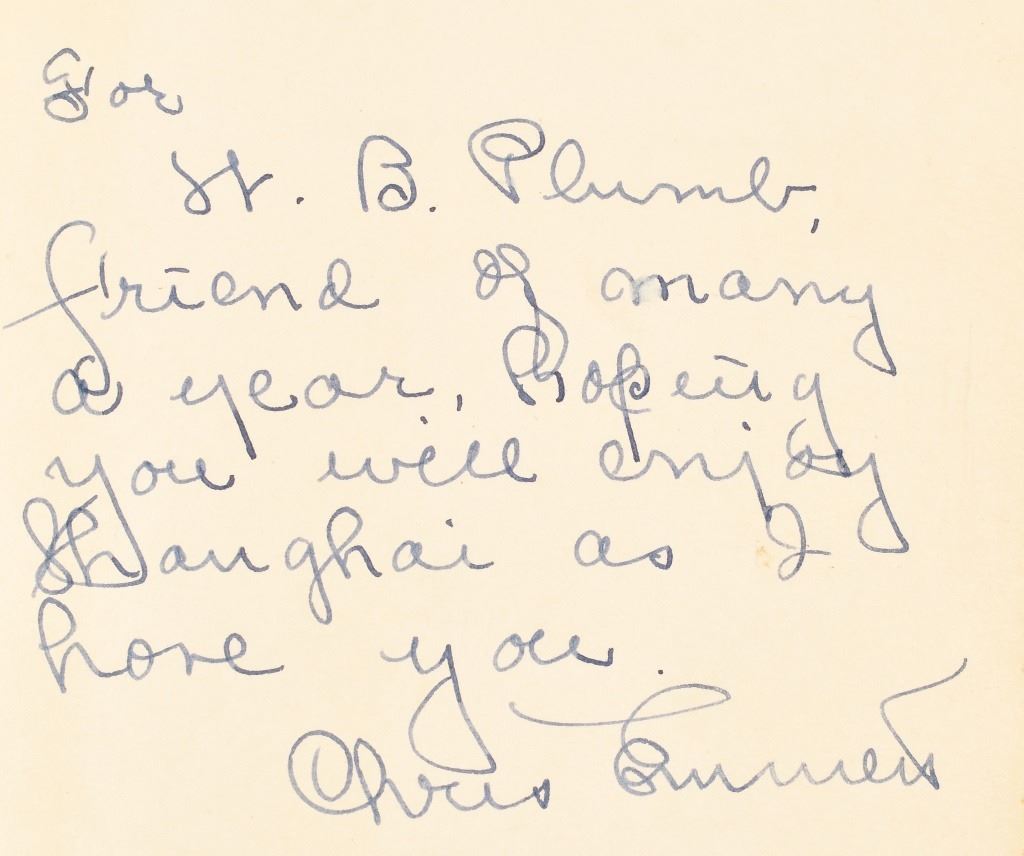 For
W. B. Plumb,
friend of many
a year, hoping
you will enjoy
Shanghai as I
have you.
Chris Emmett